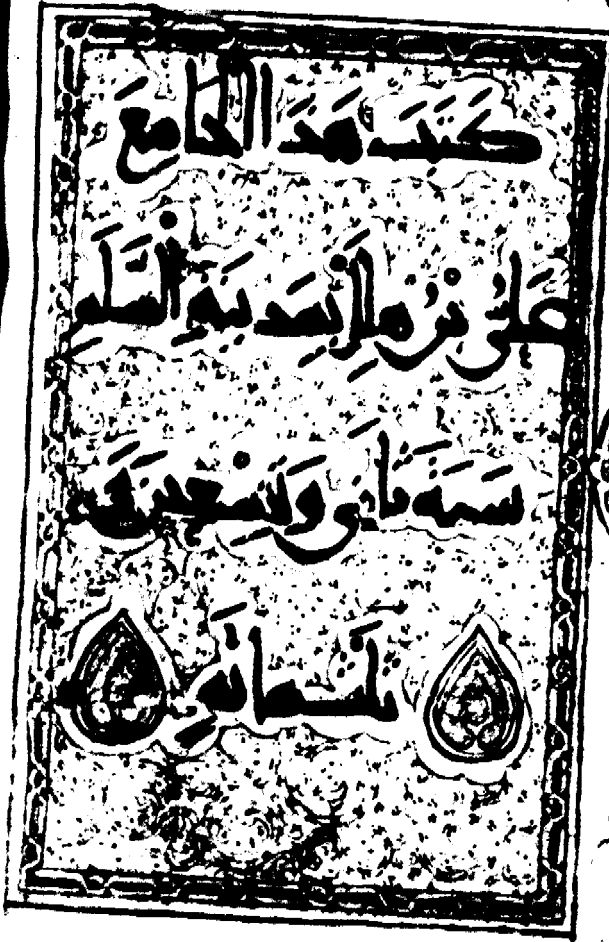 كَتَبَ هَذَا الجَامِعَ
عَلِيُّ بْنُ هِلَالٍ بِمَدِينَةِ السَّلَمِ
سَنَةَ ثَانِي وَتِسْعِينَ وَ
ثَلَثَمِائَةٍ